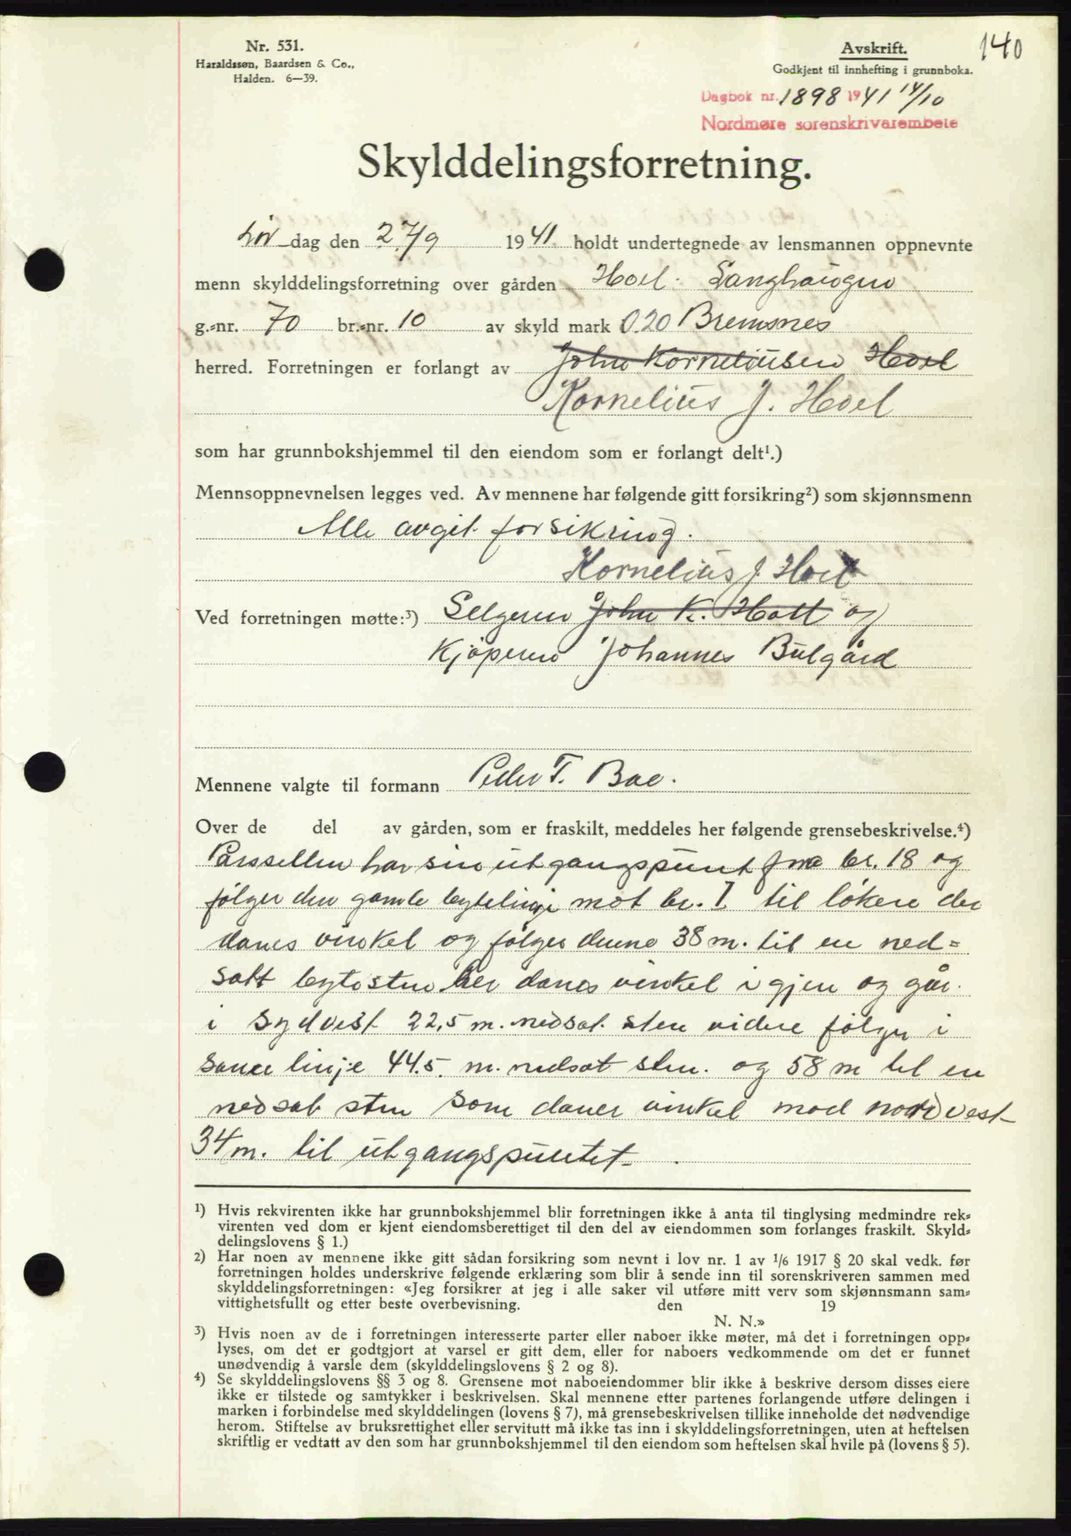 Nr. 531.
Haraldssøn, Baardsen & Co.,
Halden. 6—39.
Avskrift.
Godkjent til innhefting i grunnboka.
140
Dagbok nr. 1898 1941 14/10
Nordmøre sorenskriverembete
Skylddelingsforretning.
Lør dag den 27/9 1941 holdt undertegnede av lensmannen oppnevnte
menn skylddelingsforretning over gården Hoel. Langhaugen
g.-nr. 70 br.-nr. 10 av skyld mark 0.20 Bremsnes
herred. Forretningen er forlangt av John Korneliussen Hoel
Kornelius J. Hoel
som har grunnbokshjemmel til den eiendom som er forlangt delt¹.)
Mennsoppnevnelsen legges ved. Av mennene har følgende gitt forsikring²) som skjønnsmenn
Alle avgit forsikring.
Kornelius J. Hoel
Ved forretningen møtte:³) Selgeren John K. Hoel og
Kjøperen Johannes Bulgård
Mennene valgte til formann Peder T. Bae.
Over de del av gården, som er fraskilt, meddeles her følgende grensebeskrivelse.⁴)
Parsellen har sin utgangspunt fra br. 18 og
følger den gamle bytelinje mot br. 1 til løkere der
danes vinkel og følges denne 38 m. til en ned=
satt bytesten her danes vinkel i gjen og går
i sydvest 22,5 m. nedsat sten videre følger i
same linje 44.5 m. nedsat sten. og 58 m til en
nedsat sten som daner vinkel mod nordvest
34 m. til utgangspuntet.
¹) Hvis rekvirenten ikke har grunnbokshjemmel blir forretningen ikke å anta til tinglysing medmindre rek-
virenten ved dom er kjent eiendomsberettiget til den del av eiendommen som forlanges fraskilt. Skyld-
delingslovens § 1.)
²) Har noen av mennene ikke gitt sådan forsikring som nevnt i lov nr. 1 av 1/6 1917 § 20 skal vedk. før
forretningen holdes underskrive følgende erklæring som blir å sende inn til sorenskriveren sammen med
skylddelingsforretningen: «Jeg forsikrer at jeg i alle saker vil utføre mitt verv som skjønnsmann sam-
vittighetsfullt og etter beste overbevisning. den 19
N. N.»
³) Hvis noen av de i forretningen interesserte parter eller naboer ikke møter, må det i forretningen opp-
lyses, om det er godtgjort at varsel er gitt dem, eller for naboers vedkommende om det er funnet
unødvendig å varsle dem (skylddelingslovens § 2 og 8).
⁴) Se skylddelingslovens §§ 3 og 8. Grensene mot naboeiendommer blir ikke å beskrive dersom disses eiere
ikke er tilstede og samtykker i beskrivelsen. Skal mennene etter partenes forlangende utføre delingen i
marken i forbindelse med skylddelingen (lovens § 7), må grensebeskrivelsen tillike inneholde det nødvendige
herom. Stiftelse av bruksrettighet eller servitutt må ikke tas inn i skylddelingsforretningen, uten at heftelsen
skriftlig er vedtatt av den som har grunnbokshjemmel til den eiendom som heftelsen skal hvile på (lovens § 5).